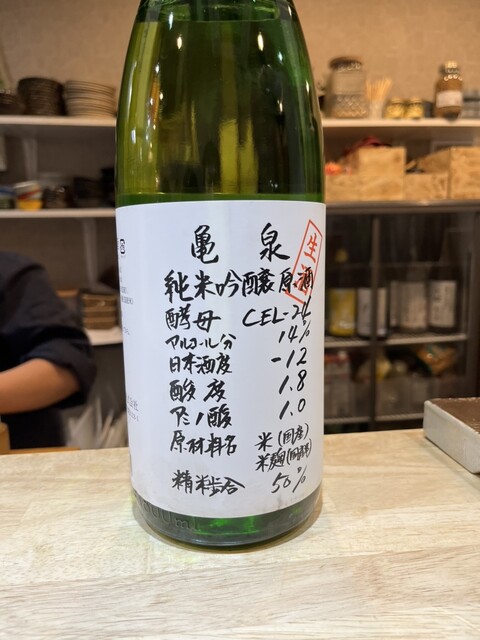 亀泉
生酒
純米吟醸原酒
酵母 CEL-24
アルコール分 14%
日本酒度 -12
酸度 1.8
アミノ酸 1.0
原材料名 米(国産)
米麹(国産米)
精米歩合 50%